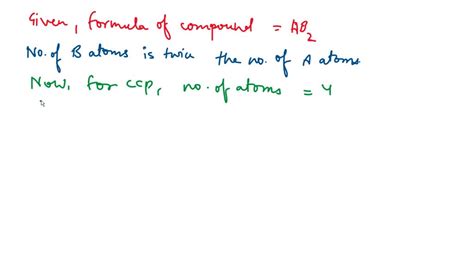 Given, formula of compound = AB₂
No. of B atoms is twice the no. of A atoms
Now, for ccp, no. of atoms = 4